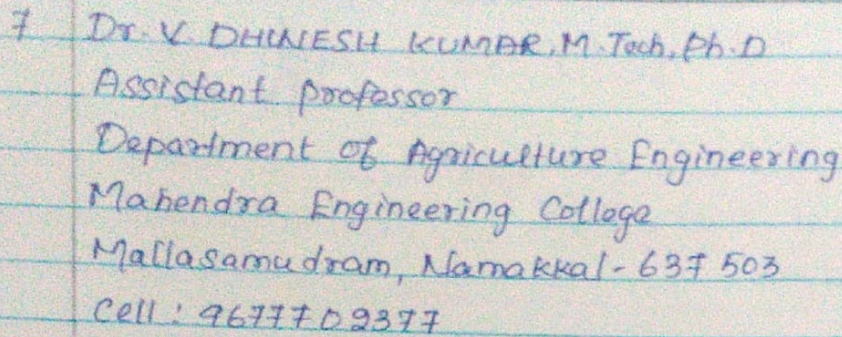 7 Dr. V. DHINESH KUMAR, M.Tech, Ph.D
Assistant professor
Department of Agriculture Engineering
Mahendra Engineering College
Mallasamudram, Namakkal - 637 503
Cell : 9677702377